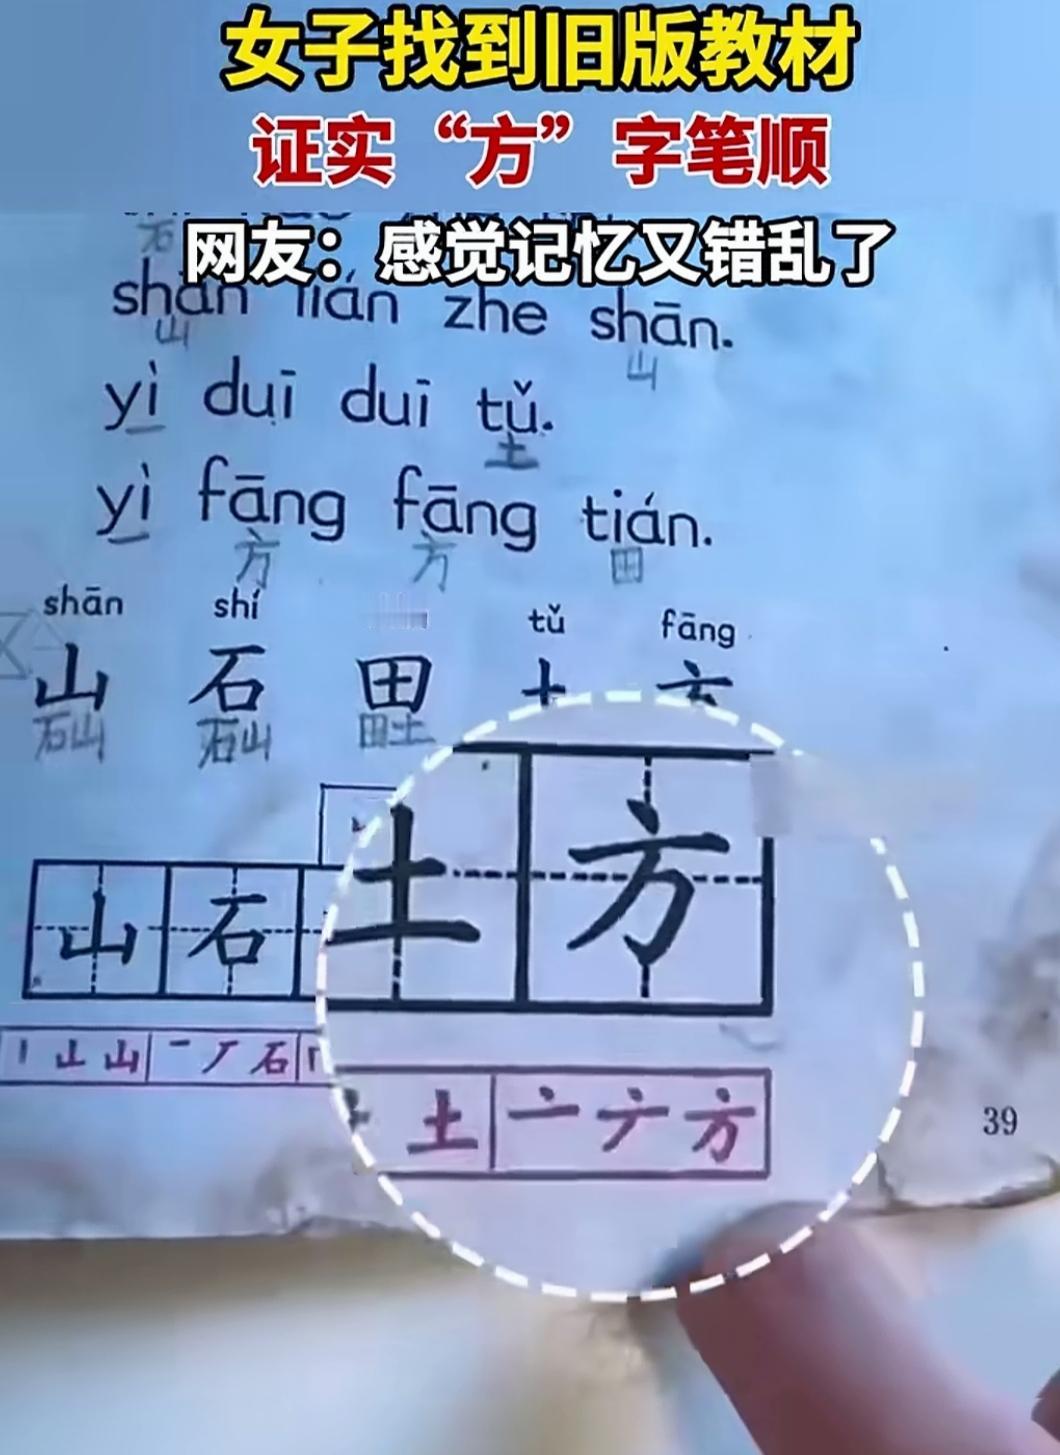 女子找到旧版教材
证实“方”字笔顺
网友：感觉记忆又错乱了
石
shān lián zhe shān.
山 山
yì duī duī tǔ.
一 土
yì fāng fāng tián.
一 方 方 田
shān shí tǔ fāng
山 石 田 土 方
石山 石山 田土
山 石 土 方
丨 山 山 一 丆 石 土 亠 亠丿 方
39